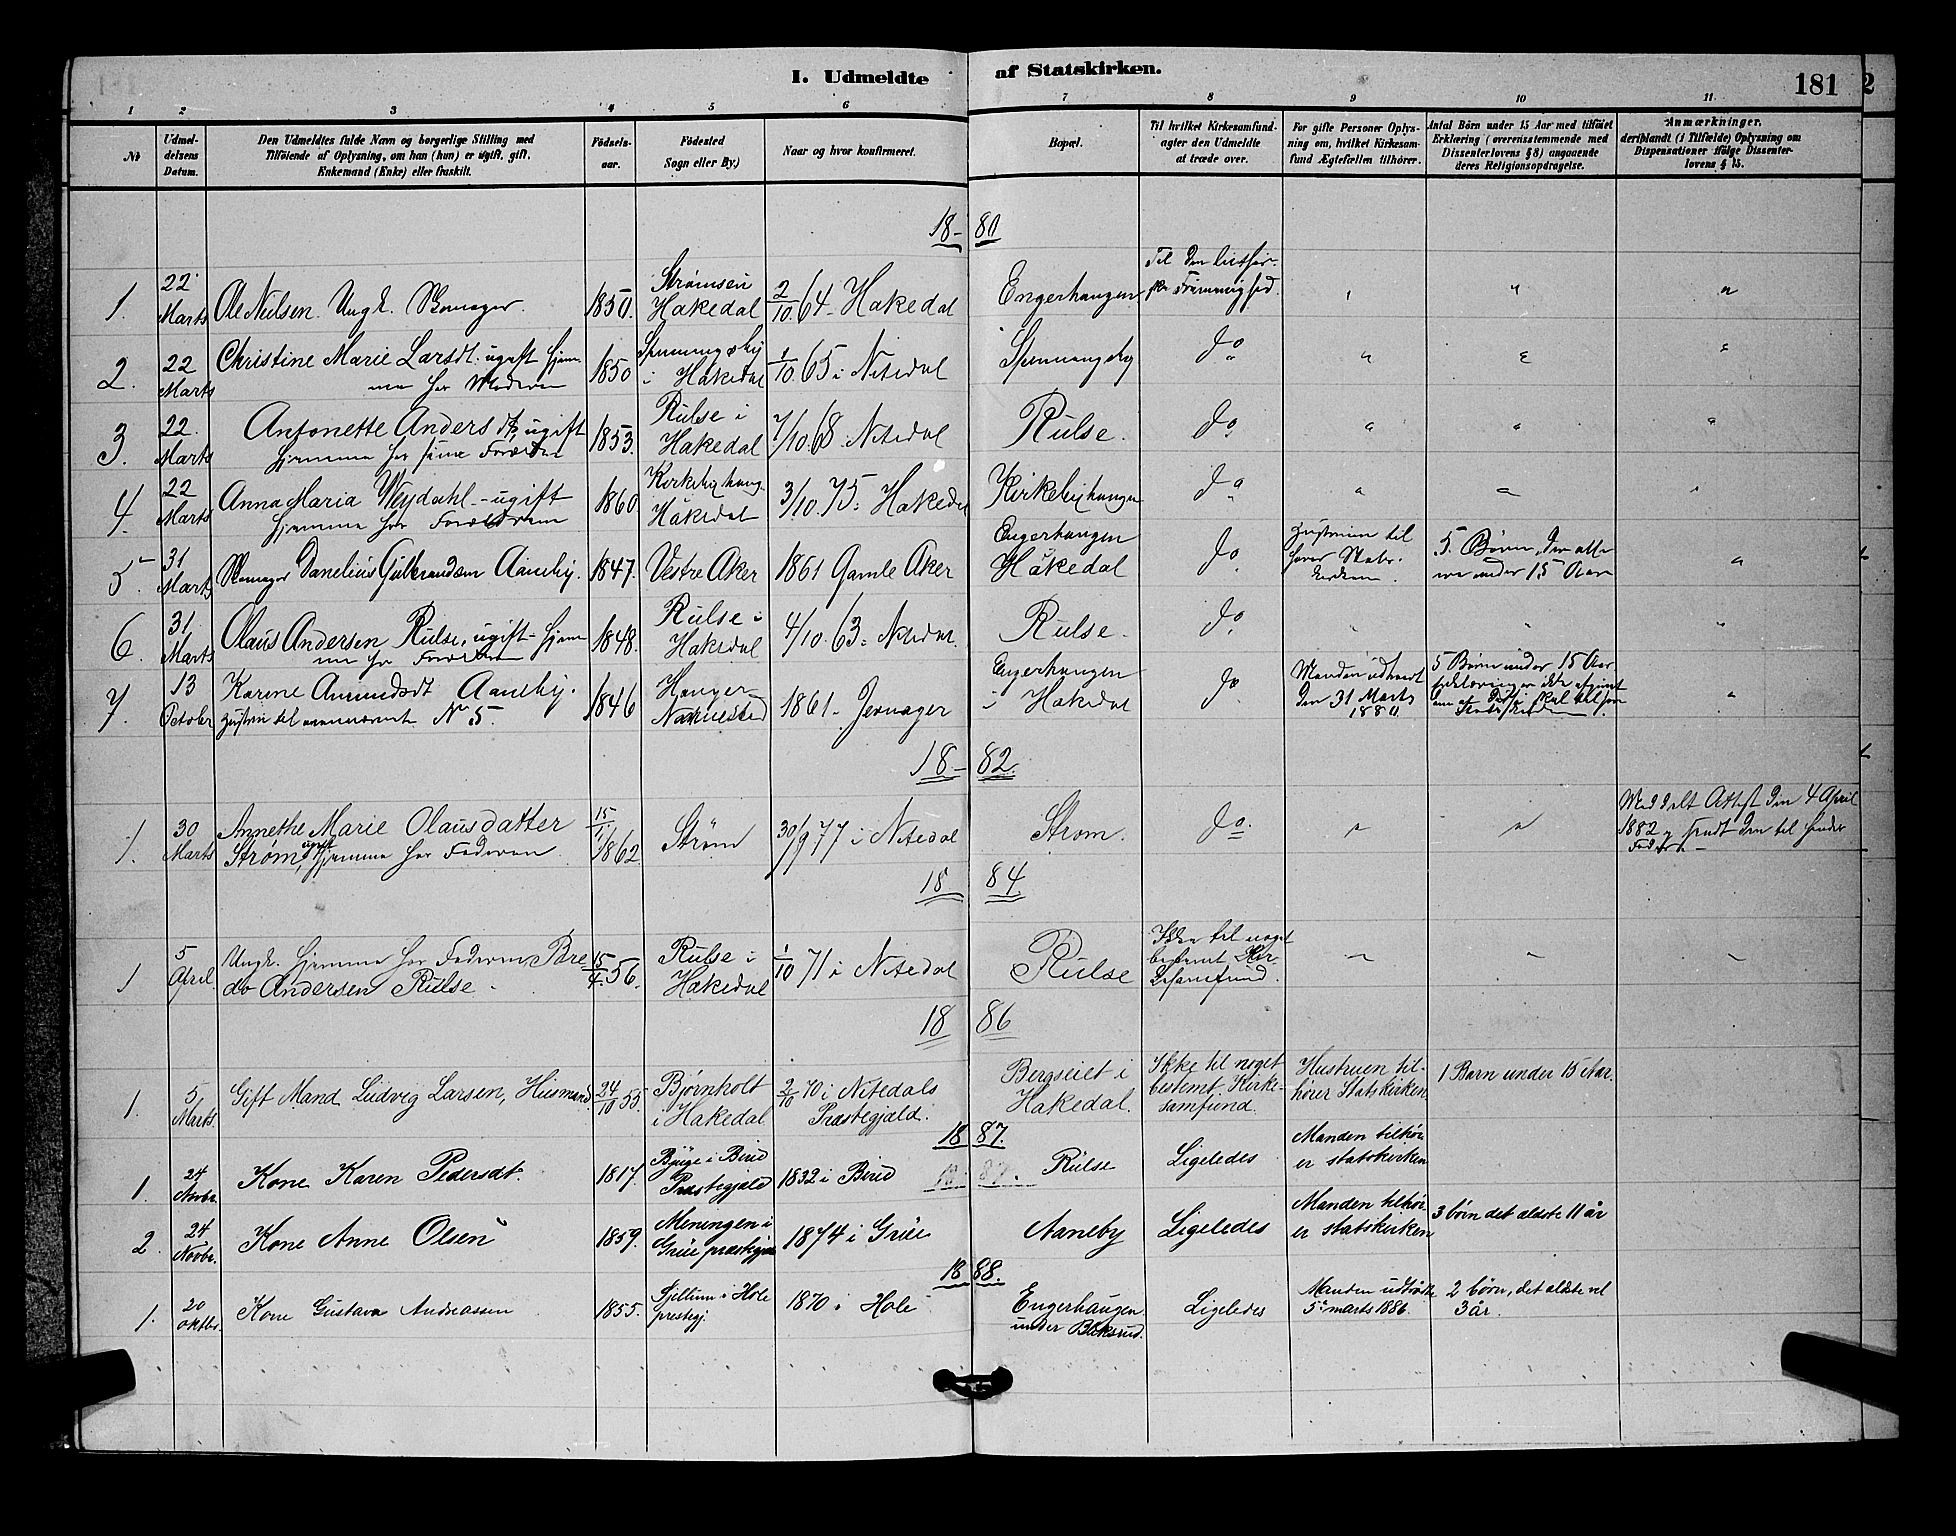 I. Udmeldte af Statskirken.
181
2
1 2 3 4 5 6 7 8 9 10 11.
No
Udmeldelsens Datum.
Den Udmeldtes fulde Navn og borgerlige Stilling med
Tilføiende af Oplysning, om han (hun) er ugift, gift,
Enkemand (Enke) eller fraskilt.
Fødselsaar.
Fødested
Sogn eller By.)
Naar og hvor konfirmeret.
Bopæl.
Til hvilket Kirkesamfund-
agter den Udmeldte
at træde over.
For gifte Personer Oplys-
ning om, hvilket Kirkesam-
fund Ægtefællen tilhører.
Antal Børn under 15 Aar med tilføiet
Erklæring (overensstemmende med
Dissenterlovens § 8) angaaende
deres Religionsopdragelse.
Anmærkninger.
deriblandt (i Tilfælde) Oplysning om
Dispensationer ifølge Dissenter-
lovens § 15.
18-80
1. 22 Marts Ole Nielsen Ungk. Skomager. 1850. Strømseie Hakedal 2/10. 64 - Hakedal Engerhaugen Til den
2. 22 Marts Christine Marie Larsdt. ugift hjem-
me hos Moderen 1850 i Hakedal 1/10. 65 i Nitedal do
3. 22. Marts Antonette Andersdt, ugift
hjemme hos sine Forældre 1853. Rulse i Hakedal 7/10. 68. Nitedal Rulse. do
4. 22 Marts Anna Maria Weydahl - ugift
hjemme hos Forældrene 1860 Kirkebyhaug. Hakedal 3/10. 75. Hakedal Kirkebyhaugen do
5. 31 Marts Skomager Danelius Gulbrandsen Aaneby. 1847. Vestre Aker 1861 Gamle Aker Engerhaugen Hakedal do. Hustruen til
hører Stats-
kirken. 5. Børn, der alle
ere under 15 Aar
6. 31. Marts Olaus Andersen Rulse, ugift - hjem
me hos Forældrene 1848. Rulse i Hakedal 4/10. 63. Nitedal. Rulse. do.
7. 13 October Karine Amundsdt Aaneby.
Hustru til No 5. 1846 1861 - Jevnager Engerhaugen i Hakedal do Manden udtraadt
den 31 Marts
1880. 5 Børn under 15 Aar
18-82.
1. 30 Marts Annethe Marie Olausdatter
Strøm, ugift hjemme hos Faderen 15/11 1862. Strøm 30/9 77 i Nitedal Strøm. do. Meddelt Attest den 4 April
1882 og sendt den til hendes
Fader. -
18 84
1 5 April. Ungk. hjemme hos Faderen Bre
do Andersen Rulse. 15/4 56. Rulse i Hakedal 1/10 71 i Nitedal Rulse Ikke til noget
bestemt Kir-
kesamfund.
18 86
1. 5 Marts. Gift Mand Ludvig Larsen, Husmand 24/10 55. Bjørnholt i Hakedal 2/10 70 i Nitedals
Præstegjæld. Bergseiet i
Hakedal. Ikke til noget
bestemt Kirke-
samfund. Hustruen til-
hører Statskirken. 1 Barn under 15 Aar.
18 87.
1. 24 Novbr. Kone Karen Pedersdt. 1817. i Birid
Præstegjæld 1832 i Birid Rulse Ligeledes Manden tilhør
er statskirken
2. 24 Novbr. Kone Anne Olsen 1859. Meningen i
Grue præstegjæld 1874 i Grue Aaneby Ligeledes Manden tilhør
er statskirken 3 børn det ældste 11 år
18 88.
1. 20 oktbr. Kone Gustava Andreassen 1855. i Hole
prestegj. 1870 i Hole Engerhaugen
under Ligeledes Manden udtrådte
5te marts 1886. 2 børn, det ældste vel
3 år.